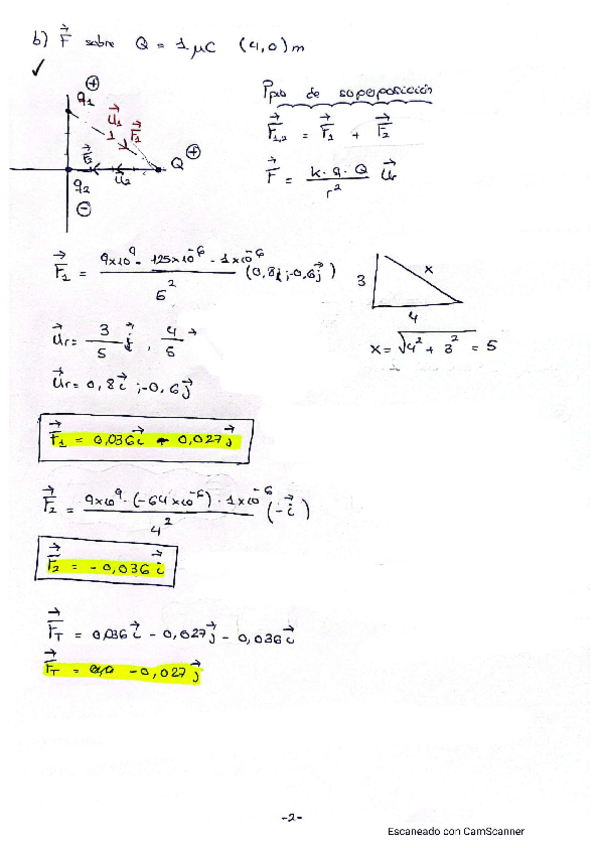 b) F⃗ sobre Q = 1 μC (4,0) m
✓
⊕
q₁
u⃗₁
F⃗₁
F⃗₂
u⃗₂
Q ⊕
q₂
⊖
Ppio de superposición
F⃗₁,₂ = F⃗₁ + F⃗₂
F⃗ = k·q·Q / r² u⃗r
F⃗₁ = 9x10⁹ · 125x10⁻⁶ · 1x10⁻⁶ / 5² (0,8i⃗ ; -0,6j⃗)
3
x
4
x = √4² + 3² = 5
u⃗r = 3/5 j⃗ , 4/5
u⃗r = 0,8i⃗ ; -0,6j⃗
F⃗₁ = 0,036i⃗ - 0,027j⃗
F⃗₂ = 9x10⁹ · (-64x10⁻⁶) · 1x10⁻⁶ / 4² (-i⃗)
F⃗₂ = -0,036i⃗
F⃗T = 0,036i⃗ - 0,027j⃗ - 0,036i⃗
F⃗T = -0,027j⃗
-2-
Escaneado con CamScanner